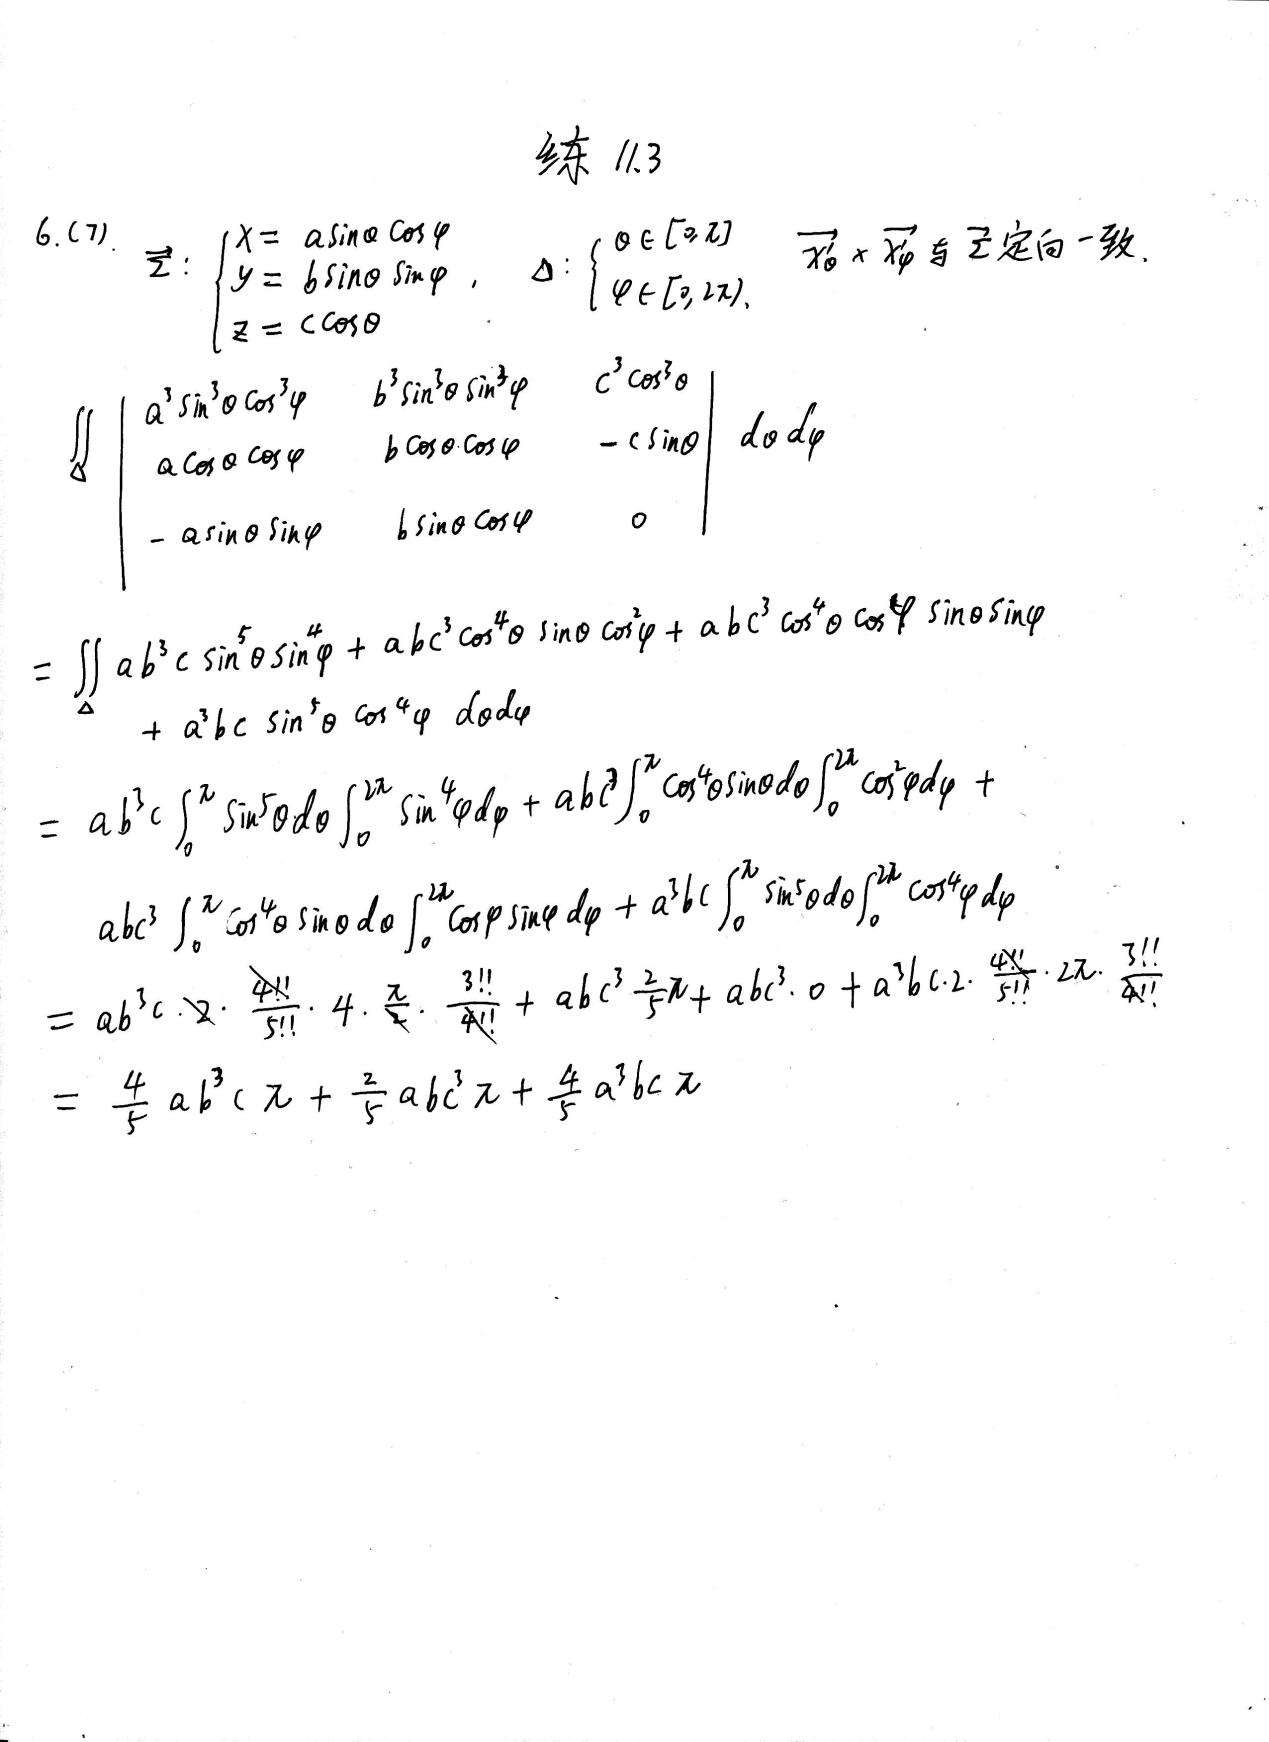 练 11.3
6.(7). Σ⃗: { x = a sinθ cosφ, y = b sinθ sinφ, z = c cosθ , Δ: { θ∈[0,π], φ∈[0,2π). x⃗'θ × x⃗'φ 与 Σ⃗ 定向一致.
∬_Δ | a³sin³θcos³φ b³sin³θsin³φ c³cos³θ |
| a cosθ cosφ b cosθ·cosφ -c sinθ | dθdφ
| -a sinθ sinφ b sinθ cosφ 0 |
= ∬_Δ ab³c sin⁵θ sin⁴φ + abc³cos⁴θ sinθ cos²φ + abc³ cos⁴θ cosφ sinθ sinφ
+ a³bc sin⁵θ cos⁴φ dθdφ
= ab³c ∫₀^π sin⁵θdθ ∫₀^2π sin⁴φdφ + abc³∫₀^π cos⁴θsinθdθ∫₀^2π cos²φdφ +
abc³ ∫₀^π cos⁴θ sinθdθ ∫₀^2π cosφ sinφ dφ + a³bc ∫₀^π sin⁵θdθ∫₀^2π cos⁴φdφ
= ab³c · 2 · 4!!/5!! · 4 · π/2 · 3!!/4!! + abc³ 2/5 π + abc³·0 + a³bc·2· 4!!/5!! · 2π · 3!!/4!!
= 4/5 ab³cπ + 2/5 abc³π + 4/5 a³bcπ